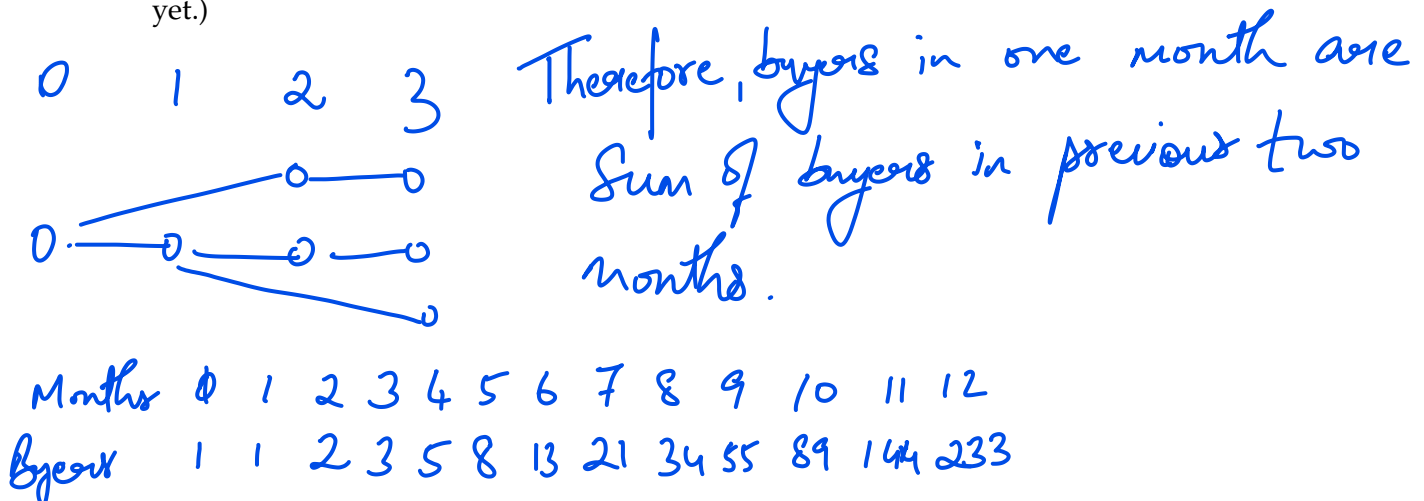 yet.)
0 1 2 3
Therefore, buyers in one month are
Sum of buyers in previous two
months.
Months 0 1 2 3 4 5 6 7 8 9 10 11 12
Byers 1 1 2 3 5 8 13 21 34 55 89 144 233